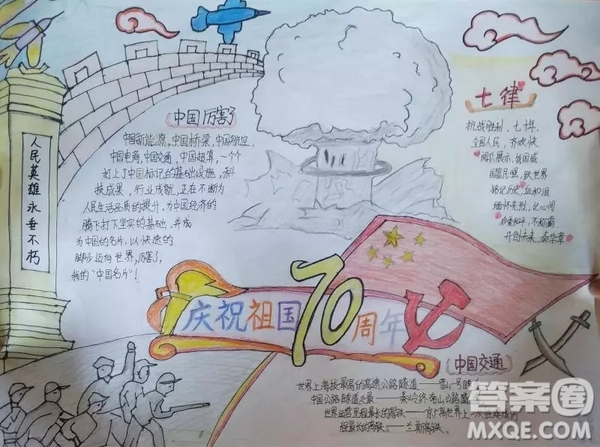 人民英雄永垂不朽
中国厉害了
中国新能源,中国桥梁,中国航空,
中国电商,中国交通,中国超算,一个个
打上了中国标记的基础设施,高科
技成果,行业成就,正在不断为
人民生活品质的提升,为中国经济的
腾飞打下坚实的基础,并成
为中国的名片,以快速的
脚步迈向世界,厉害了,
我的“中国名片”!
七律
抗战胜利,七十年,
全国人民,齐欢快
阅兵展示,强国威
国富民强,跃世界
铭记历史,血和泪
缅怀先烈,记心间
热爱和平,不称霸
开创未来,奏华章
庆祝祖国70周年
中国交通
世界上海拔最高的高速公路隧道——雪山一号
中国公路隧道之最——秦岭终南山公路隧
世界运营里程最长的高铁——京广
里程最长的高铁——兰新高铁
答案圈
MXQE.COM